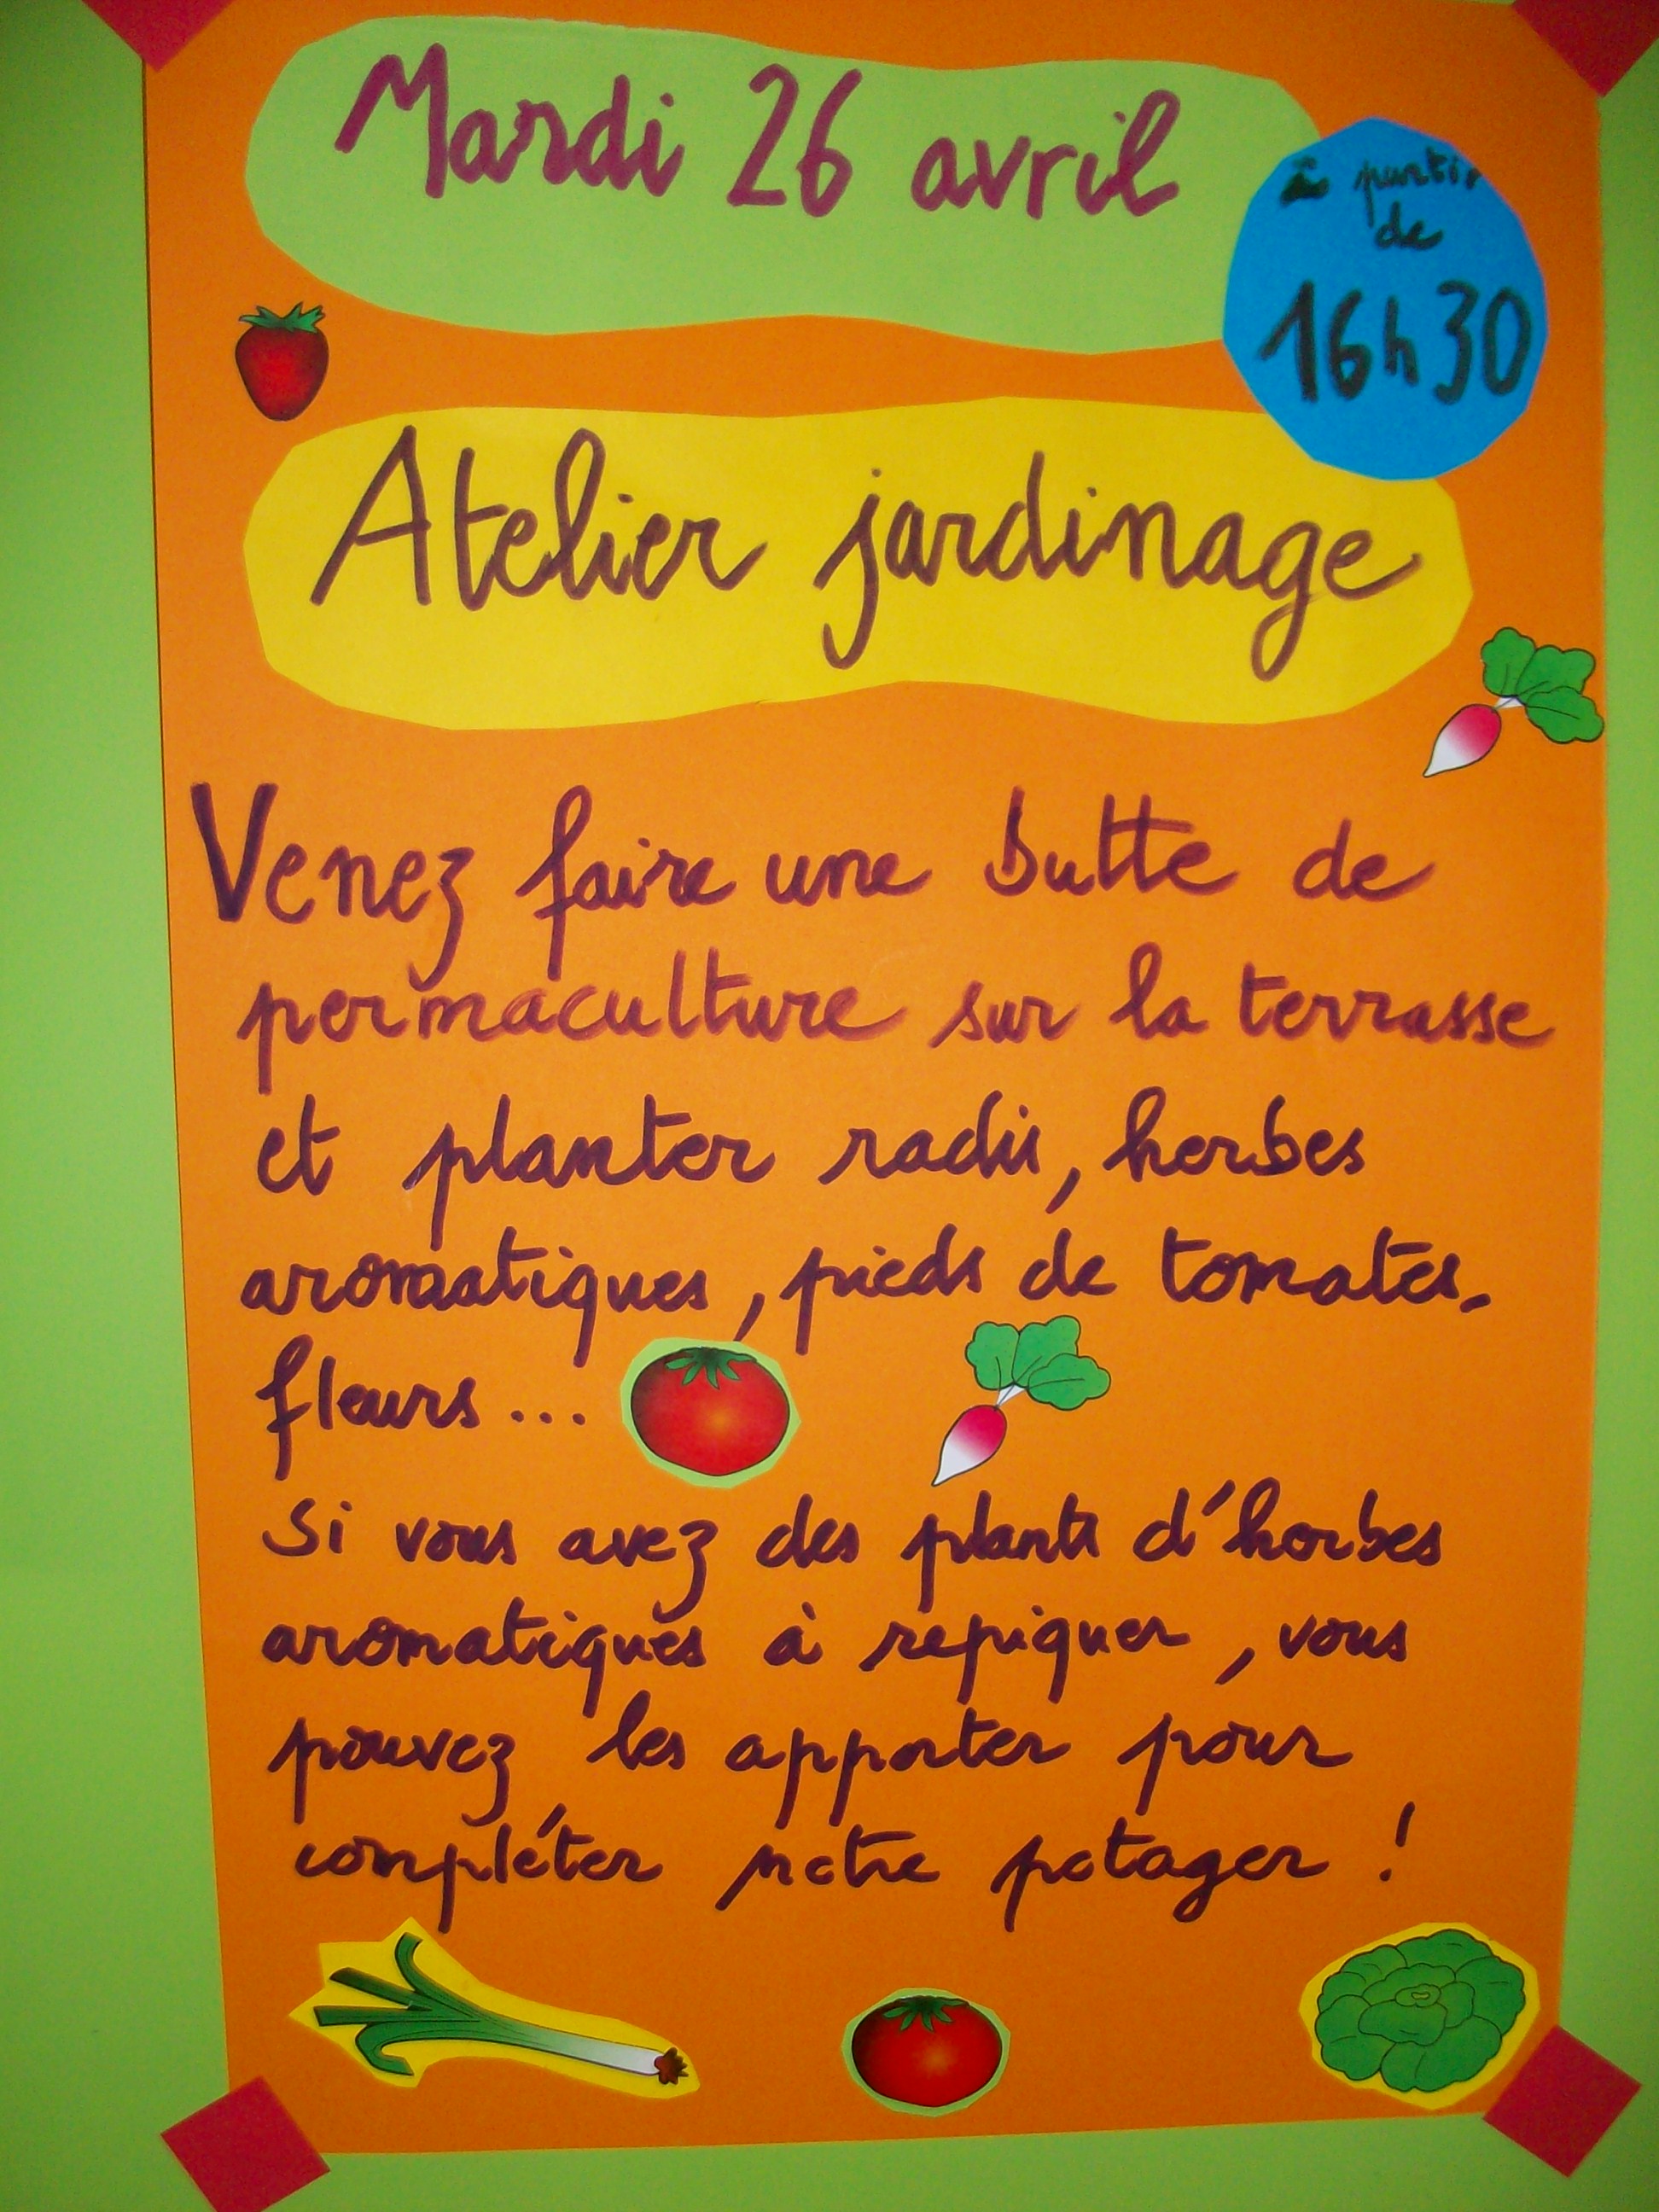 Mardi 26 avril
à partir
de
16h30
Atelier jardinage
Venez faire une butte de
permaculture sur la terrasse
et planter radis, herbes
aromatiques, pieds de tomates,
fleurs...
Si vous avez des plants d'herbes
aromatiques à repiquer, vous
pouvez les apporter pour
compléter notre potager !